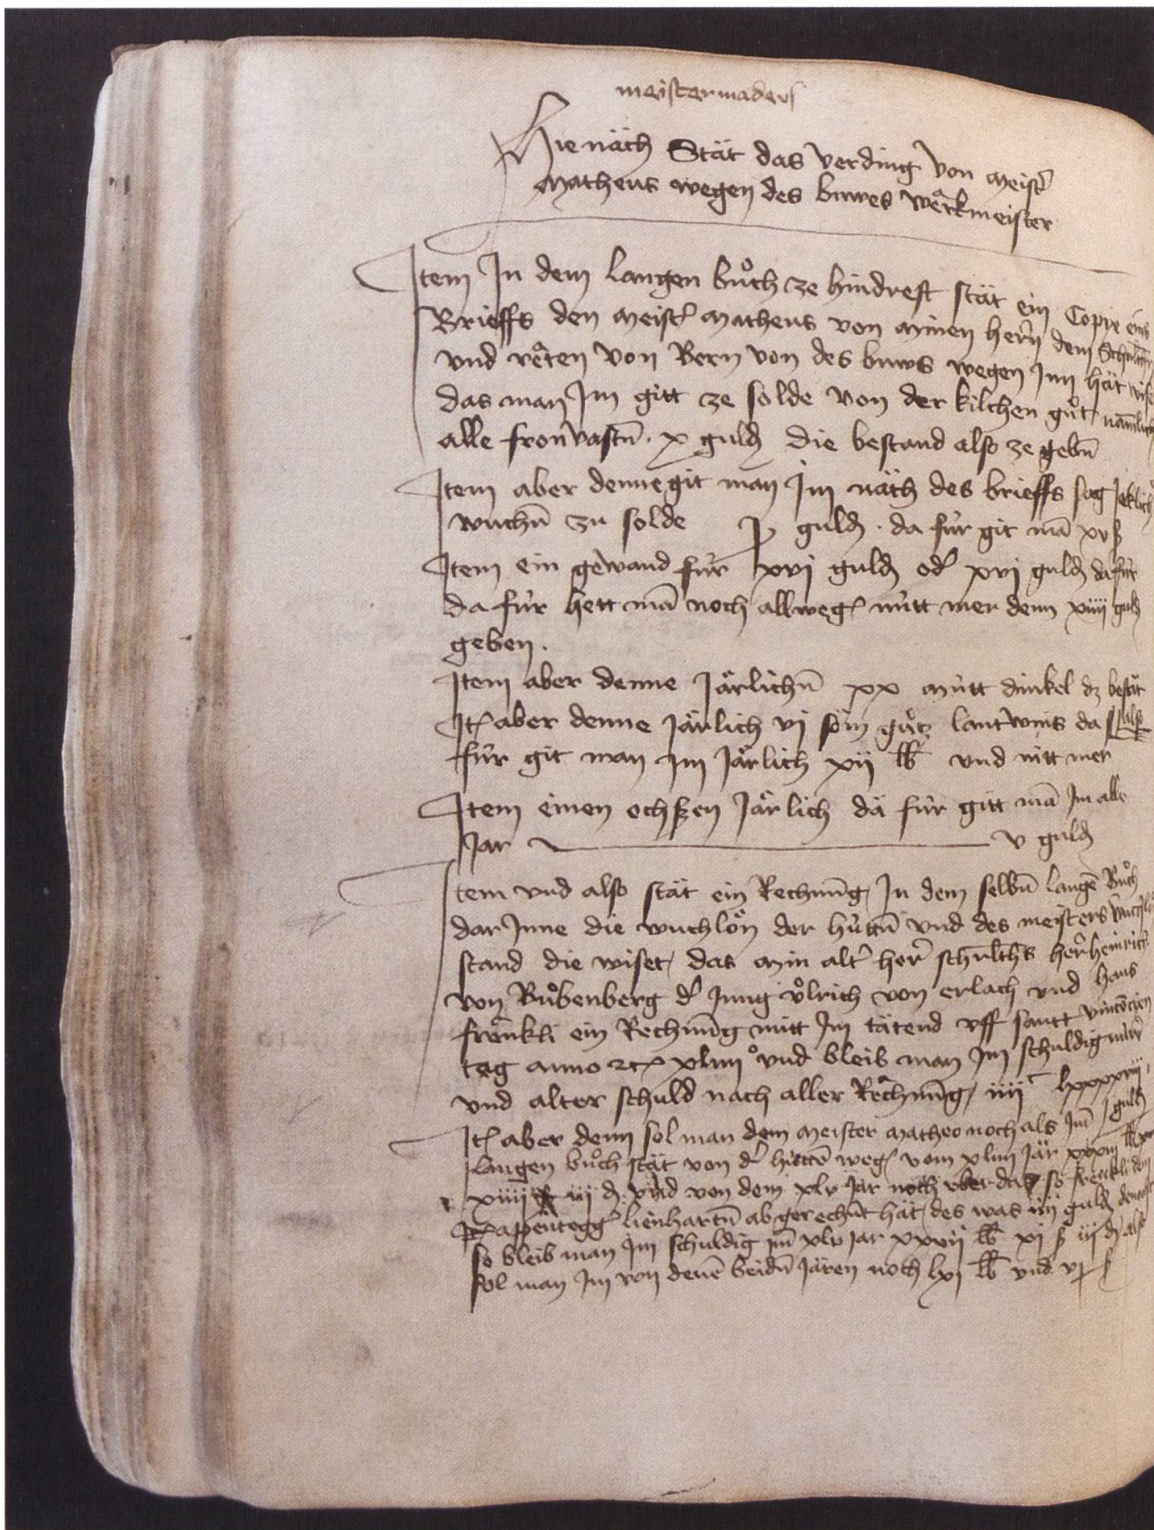 meistermaders
Hie näch Stät das verding von meist̃
Matheus wegen des buwes wͤrkmeister
Item In dem langen bůch ze hindrest stät ein Copye eins
Brieffs den meist̃ Matheus von minen herñ dem Schulthñ
und rêten von Bern von des buws wegen Inn hät
das man Im gitt ze solde von der kilchen gůt nämlich
alle fronvastñ . x guld die bestand also ze gebñ
Item aber denne git man Im näch des brieffs sag Jeklich
wuchñ zu solde guld . da fúr git mā xv ß
Item ein gewand fúr xvj guld od̃ xvj guld da fúr
da fúr hett mā noch allweg̃ nútt mer denn xiiij guld
geben .
Item aber denne Järlichñ xx mútt dinkel dz bestät
It̃ aber denne Järlich vj söm gůtz lantwins da also
fúr git man Im Järlich xij lb und nitt mer
Item einen ochßen Järlich dä fúr gitt mā Im alle
Jar v guld
Item und also stät ein Rechnūg In dem selbñ langē Bůch
dar Inne die wuchlön der húttñ und des meisters
stand die wiset das min alt̃ her̃ schulths her̃ heinrich
von Bůbenberg d̃ Jung ůlrich von erlach und hans
frënkli ein Rechnūg mitt Im tätend uff santt vincēcien
tag anno xliiij° und bleib man Im schuldig núwer
und alter schuld nach aller Rechnūg iiij lxxxxviij guld
It̃ aber denn sol man dem meister Matheo noch als Im̄
langen bůch stät von d̃ húttē weg̃ vom xliiij Jär
xiiij ß iij d. und von dem xlv Jar noch uber das so frënkli dem
pappentegg̃ lienhartñ ab gerechnt hät des was iiij guld
so bleib man Im schuldig im̄ xlv Jar xxvij lb xj ß iij d also
sol man Im von denē beidñ Jären noch lxj lb und vj ß